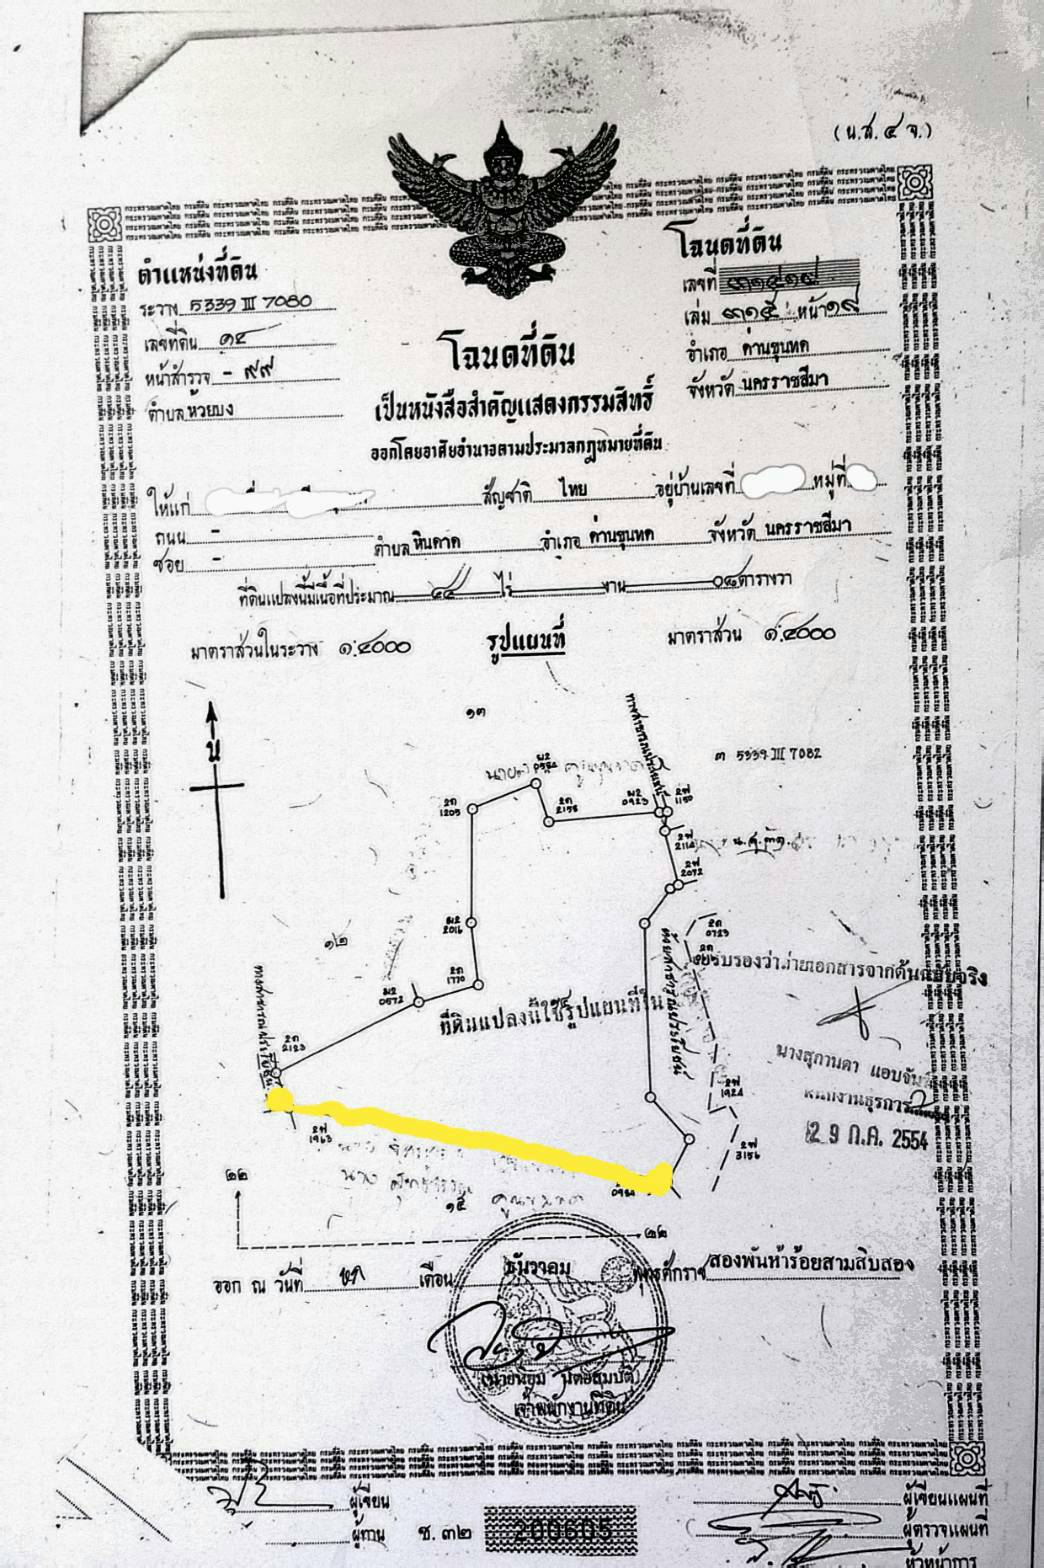 (น.ส. ๔ จ.)
ตำแหน่งที่ดิน
ระวาง 5339 III 7080
เลขที่ดิน ๑๔
หน้าสำรวจ - ๙๙
ตำบล ห้วยบง
โฉนดที่ดิน
เลขที่
เล่ม ๓๑๕ หน้า ๑๙
อำเภอ ด่านขุนทด
จังหวัด นครราชสีมา
โฉนดที่ดิน
เป็นหนังสือสำคัญแสดงกรรมสิทธิ์
ออกโดยอาศัยอำนาจตามประมวลกฎหมายที่ดิน
ให้แก่ สัญชาติ ไทย อยู่บ้านเลขที่ หมู่ที่
ถนน - ตำบล หินดาด อำเภอ ด่านขุนทด จังหวัด นครราชสีมา
ซอย -
ที่ดินแปลงนี้มีเนื้อที่ประมาณ ไร่ งาน ตารางวา
มาตราส่วนในระวาง ๑:๔๐๐๐ รูปแผนที่ มาตราส่วน ๑:๔๐๐๐
น
๑๓
ต 5339 III 7082
1205
2158
0923
1150
2114
น.ส.๓ก.
2072
๑๒
2016
0723
1770
0572
2123
ที่ดินแปลงนี้ใช้รูปแผนที่ใน
ขอรับรองว่าถ่ายเอกสารจากต้นฉบับจริง
นางสุกานดา แอบจันทึก
พนักงานธุรการ
29 ก.ค. 2554
1924
3156
1963
นาง
๑๕
๒๒
๒๒
ออก ณ วันที่ เดือน ธันวาคม พุทธศักราช สองพันห้าร้อยสามสิบสอง
เจ้าพนักงานที่ดิน
ผู้เขียน
ผู้ทาน
ช. ๓๒ 200605
ผู้เขียนแผนที่
ผู้ตรวจแผนที่
หัวหน้าการ